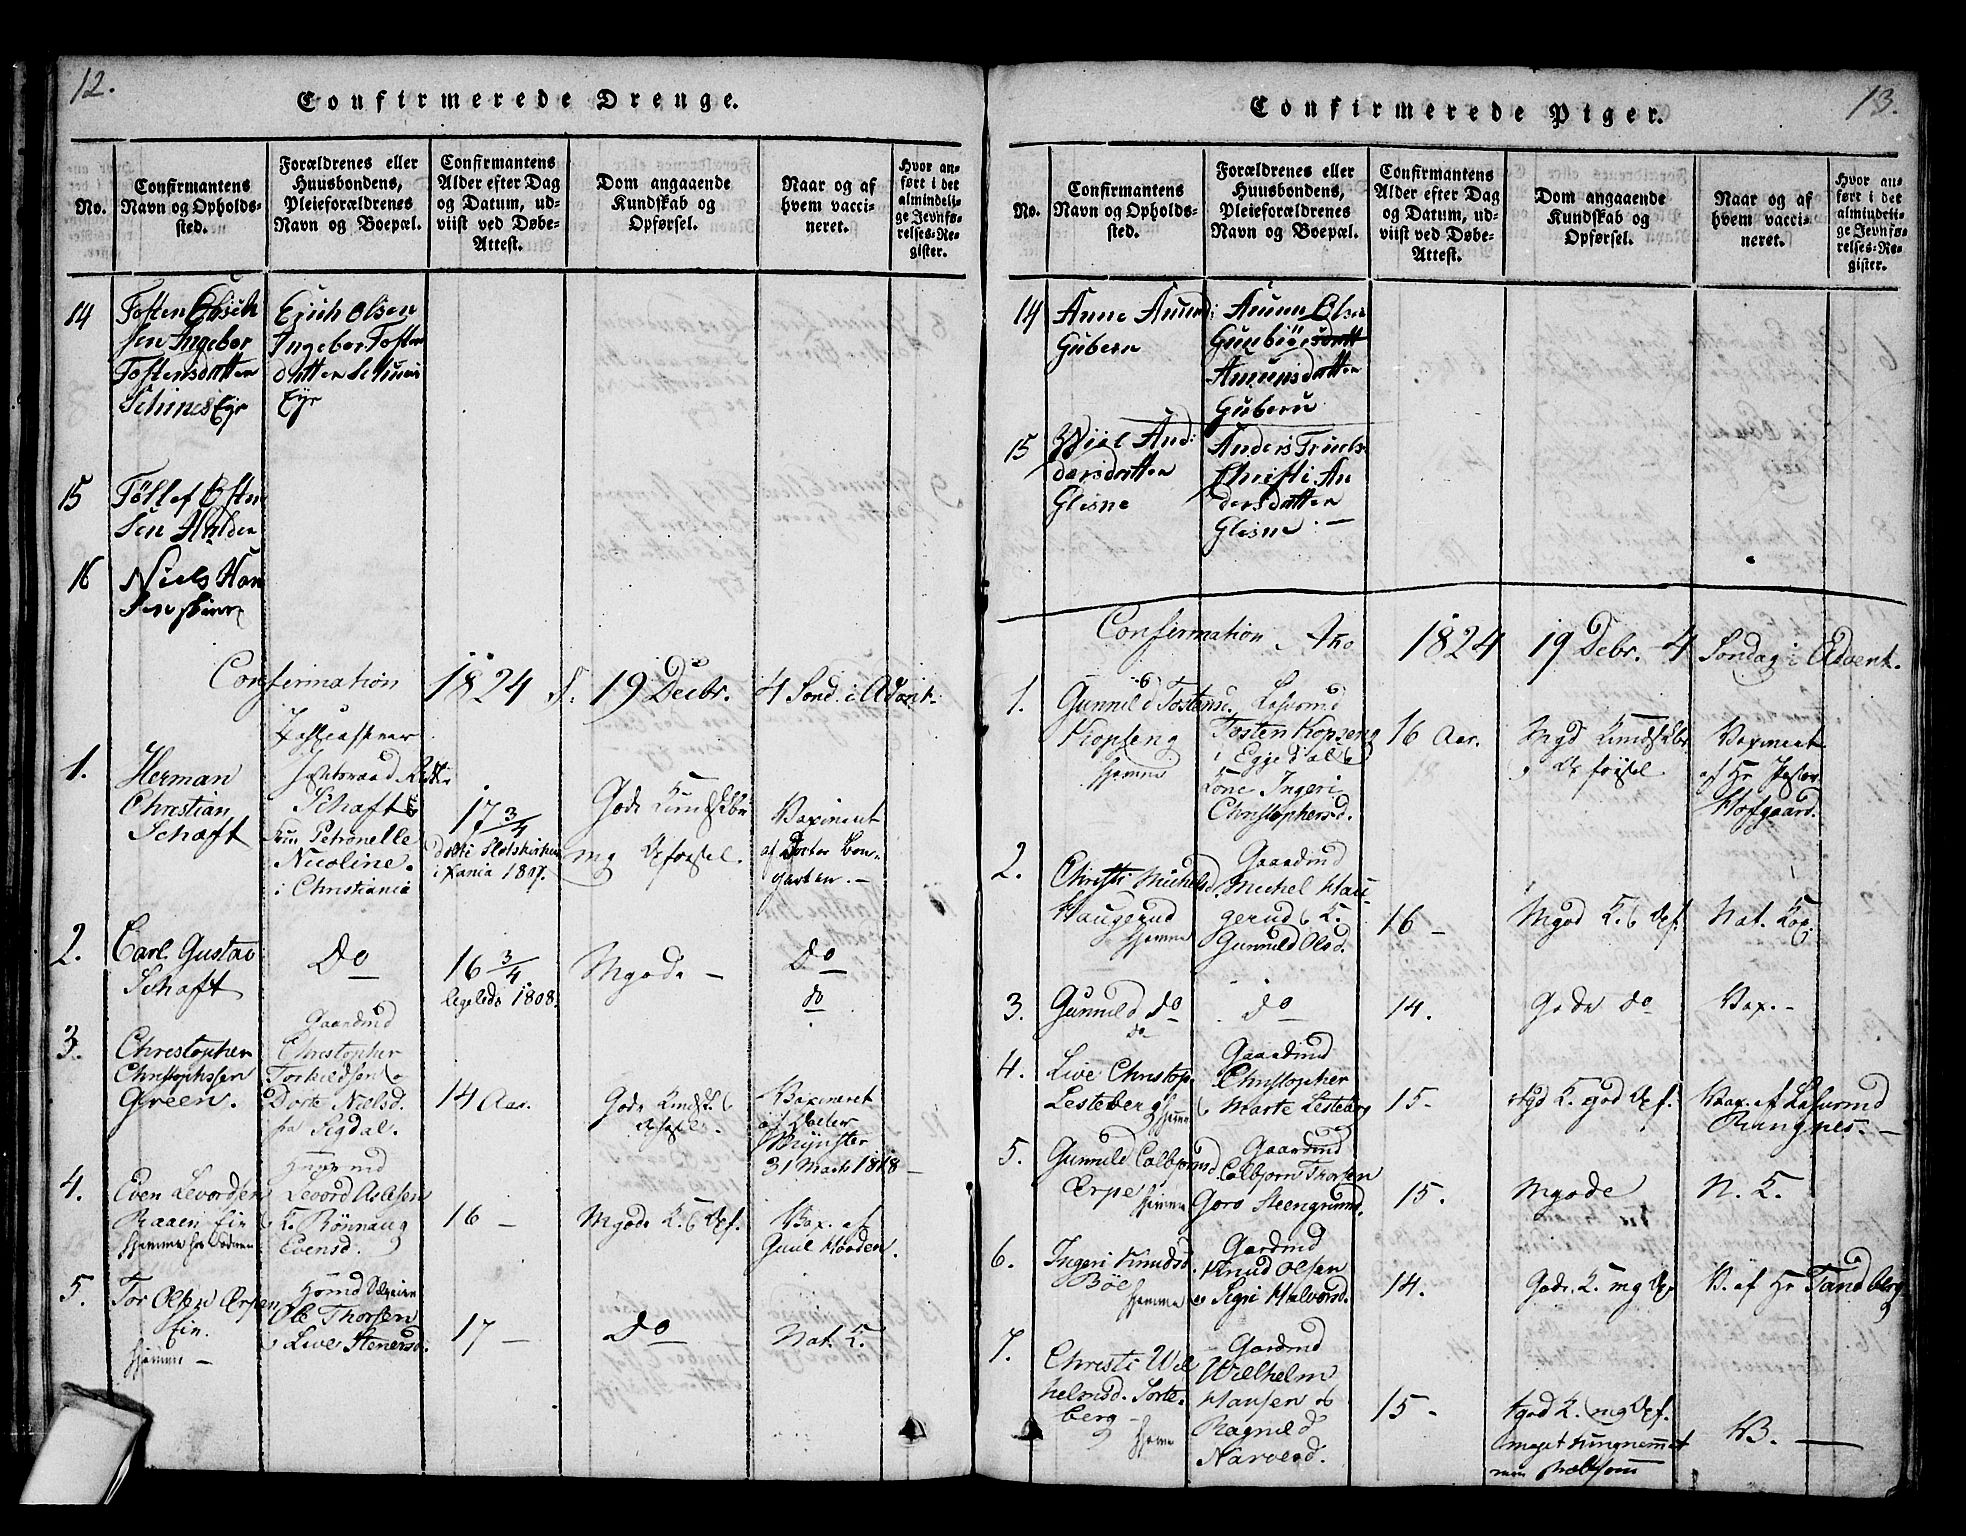 12.
Confirmerede Drenge.
No.
Confirmantens
Navn og Opholds-
sted.
Forældrenes eller
Huusbondens,
Pleieforældrenes
Navn og Boepæl.
Confirmantens
Alder efter Dag
og Datum, ud-
viist ved Døbe-
Attest.
Dom angaaende
Kundskab og
Opførsel.
Naar og af
hvem vacci-
neret.
Hvor an-
ført i det
almindeli-
ge Jevnfø-
relses-Re-
gister.
14
Tosten Erich
sen Ingebor
Tostensdatter
Eye
Erich Olsen
Ingebor Tosten
datter
Eye
15
Tollef Osten
sen Halden
16
Niels Han
sen
Confirmation 1824 d. 19 Decbr. 4 Sønd. i Advent.
1.
Herman
Christian
Schaft
Schaft &
Petronelle
Nicoline.
i Christiania
17 3/4
døbt i Slotskirken
i Xania 1807.
Gode Kundskaber
mg Opførsel.
Vaxineret
af Doctor Bom-
garten. -
2.
Carl Gustav
Schaft
Do
16 3/4
ligeleds 1808.
Mgode -
Do
do
3.
Christopher
Christophersen
Green.
Gaardmd
Christopher
Torkildsen &
Dorte Nielsd.
fra Sigdal.
14 Aar.
Gode Kundsk. &
Opførsel.
Vaxineret
af
Münster
31 Mart 1818 -
4.
Even Levordsen
Raaen Eie
hjemme
Huusmd
Levord Aslesen
& K. Rönnaug
Evensd.
16 -
Mgode K. & Opf.
Vax. af
Guul Hovden.
5.
Tor Olsen Erpen
Eie.
hjemme -
Huusmd
Ole Thorsen
& Live Stenersd.
17 -
Do
Nat. K.
13.
Confirmerede Piger.
No.
Confirmantens
Navn og Opholds-
sted.
Forældrenes eller
Huusbondens,
Pleieforældrenes
Navn og Boepæl.
Confirmantens
Alder efter Dag
og Datum, ud-
viist ved Døbe-
Attest.
Dom angaaende
Kundskab og
Opførsel.
Naar og af
hvem vacci-
neret.
Hvor an-
ført i det
almindeli-
ge Jevnfø-
relses-Re-
gister.
14
Anne Amund
Guberu
Amun Olsen
Amunsdatter
Guberu
15
Andersdatter
Glesne
Anders Truels
Christi An
dersdatter
Glesne. -
Confirmation Ao 1824 19 Debr. 4 Søndag i Advent.
1.
Gunnild Tostensd.
Kopseng
hjemme
Tosten Kopseng
i Eggedal &
Kone Ingeri
Christophersd.
16 Aar.
Mgd Kundskaber
& Opførsel
Vaxineret
af Hr Pastor
Hofgaard.
2.
Christi Michelsd.
Haugerud
hjemme
Gaardmd
Michel Hau-
gerud & K.
Gunnild Olsd.
16 -
Mgod K. & Opf.
Nat. Kop.
3.
Gunnild do
do
do
14.
Gode do
Vax. -
4.
Live Christop.
Lesteberg
hjemme
Gaardmd
Christopher
& Marte Lesteberg
15 -
Mgd K. god Opf.
Vax. af
Rangnes. -
5.
Gunnild Colbjørnsd.
Erpe
hjemme
Gaardmd
Colbjørn Thorsen
Goro Steengrund.
15.
Mgode
N. K.
6.
Ingeri Knudsd.
Böe
hjemme
Gardmd
Knud Olsen
& Sigri Halvorsd.
14.
Gode K. mg Op.
V. af Hr Tandberg
7.
Christi Wil
helmsd. Sorte-
berg -
hjemme
Gardmd
Wilhelm
Hansen &
Ragnild
Narvesd.
15 -
tgod K. mg Opf.
meget tungnemmet
men
V3. -